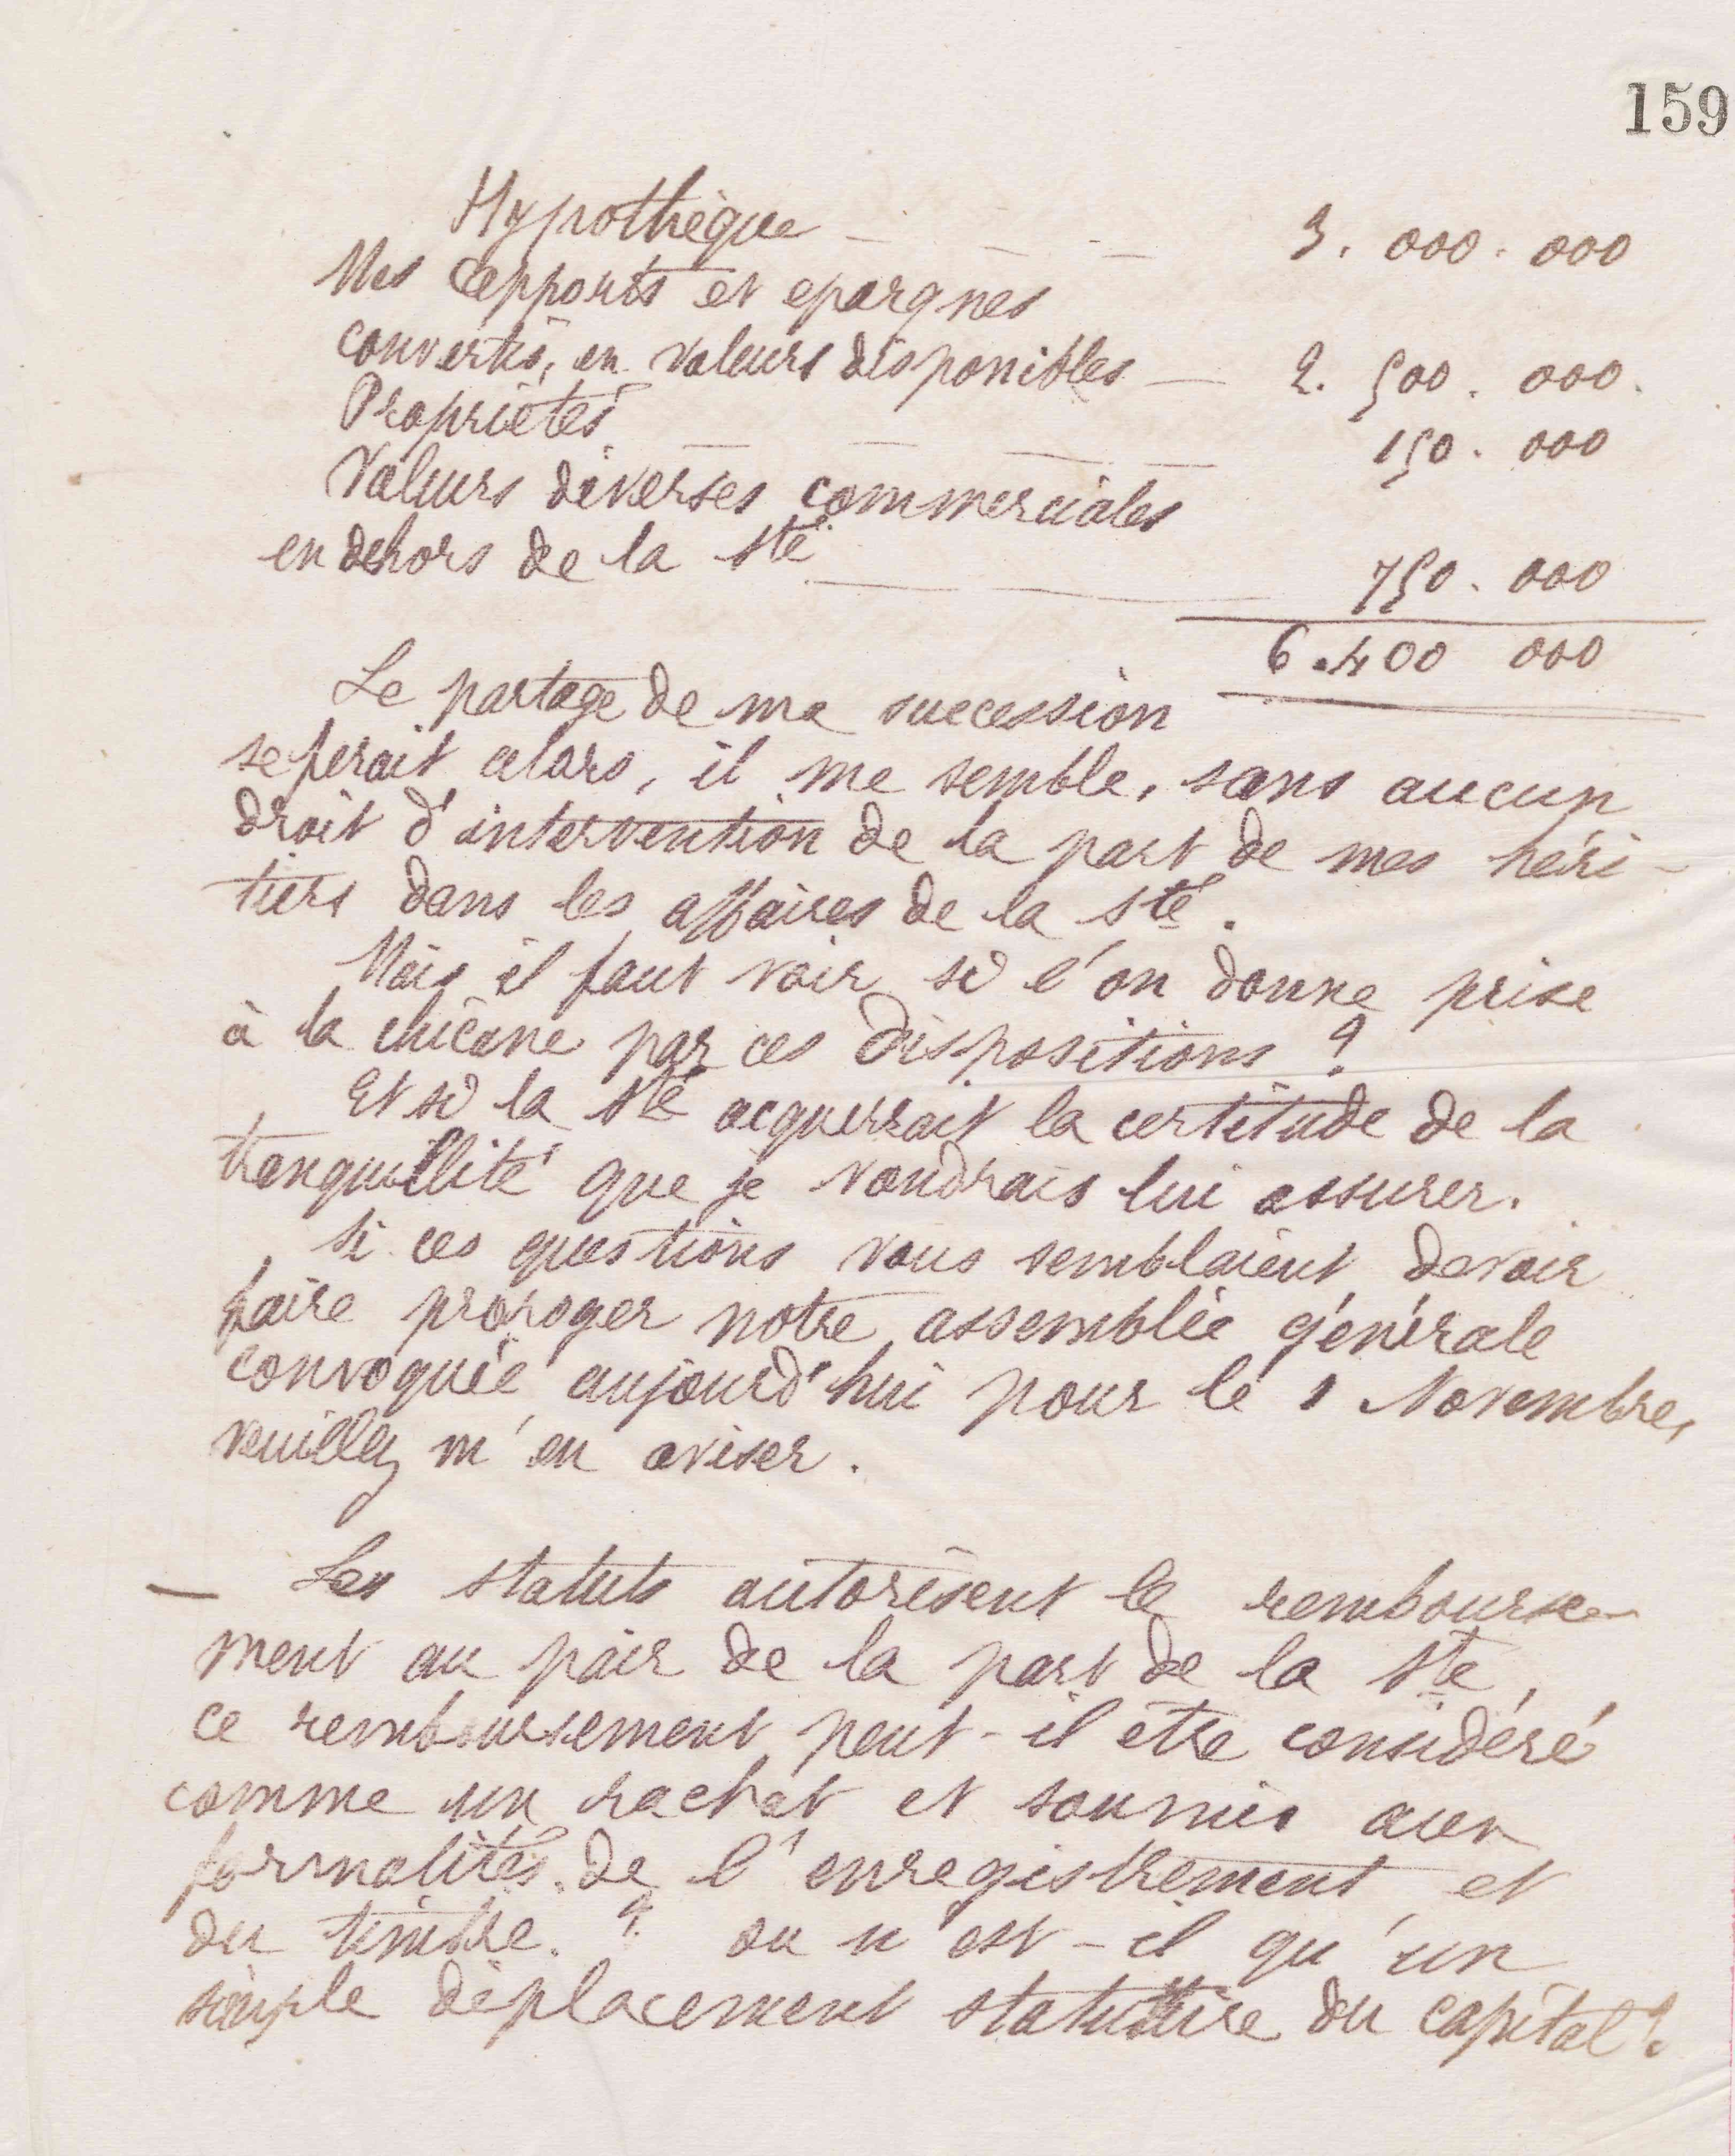 159
Hypothèque — — — 3.000.000
Mes apports et epargnes
convertis, en valeurs disponibles — 2.500.000.
Propriétés — — — — 150.000
Valeurs diverses commerciales
en dehors de la Sté — 750.000
6.400 000
Le partage de ma succession
se ferait alors, il me semble, sans aucun
droit d'intervention de la part de mes héri-
tiers dans les affaires de la Sté.
Mais il faut voir si l'on donne prise
à la chicane par ces dispositions ?
Et si la Sté acquerrait la certitude de la
tranquillité que je voudrais lui assurer.
Si ces questions vous semblaient devoir
faire proroger notre assemblée générale
convoquée aujourd'hui pour le 1 Novembre,
veuillez m'en aviser.
— Les statuts autorisent le rembourse-
ment au pair de la part de la Sté,
ce remboursement peut-il être considéré
comme un rachat et soumis aux
formalités de l'enregistrement et
du timbre. ? ou n'est-il qu'un
simple déplacement statutaire du capital ?